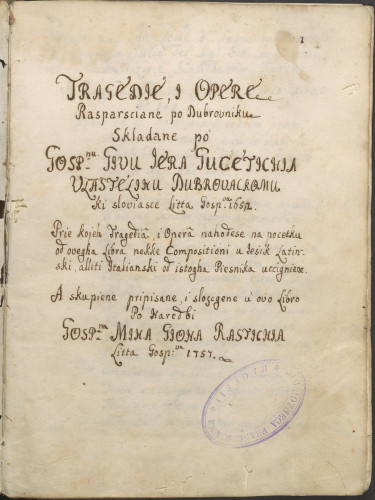 1
TRAGEDIE, I OPERE
Rasparsciane po Dubrovniku
Skladane po
GOSP:nu GIVU IERA GUCETICHIA
VLASTELINU DUBROVACKOMU
ki sloviasce Litta Gosp:va 1652.
Prie kojeh Tragedia, i Opera nahodese na pocetku
od ovegha Libra nekke Compositioni u Jesik Latin-
ski, alliti Italianski od istogha Piesnika uccignene.
A skupiene pripisane, i sloxgene u ovo Libro
Po Naredbi
GOSP:na MIHA GIONA RASTICHIA
Litta Gosp:va 1757.